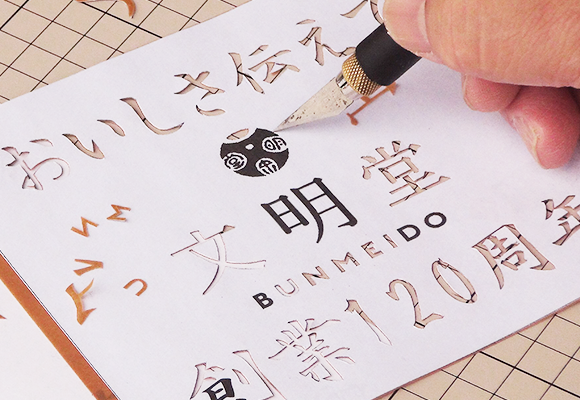 おいしさ伝えて
文明堂
BUNMEIDO
創業120周年